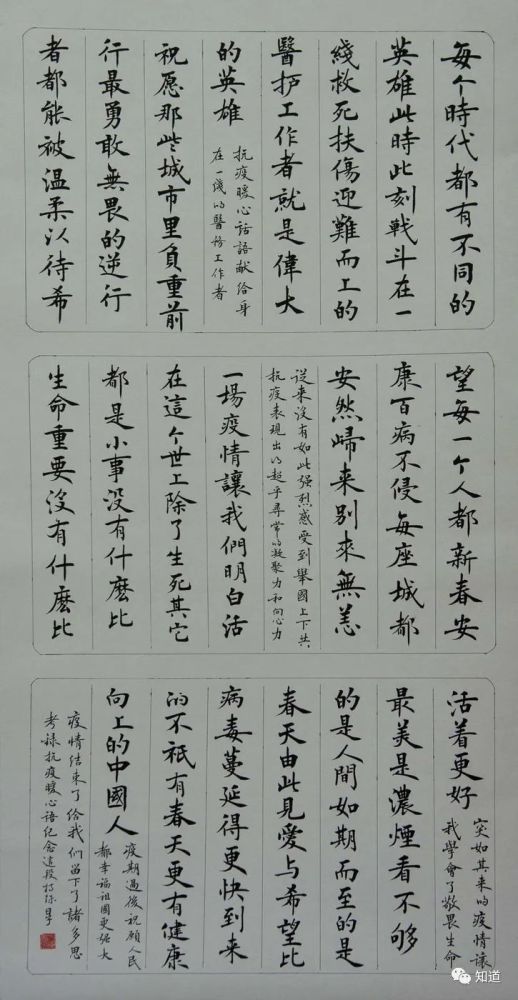 每个時代都有不同的
英雄此時此刻戰斗在一
綫救死扶傷迎難而上的
醫护工作者就是偉大
的英雄
抗疫暖心話語献给身
在一綫的醫務工作者
祝愿那些城市里負重前
行最勇敢無畏的逆行
者都能被温柔以待希
望每一个人都新春安
康百病不侵每座城都
安然歸来别來無恙
從来没有如此强烈感受到舉國上下共
抗疫表現出的超乎尋常的凝聚力和向心力
一場疫情讓我們明白活
在這个世上除了生死其它
都是小事没有什麽比
生命重要没有什麽比
活着更好
突如其来的疫情讓
我學會了敬畏生命
最美是濃煙看不够
的是人間如期而至的是
春天由此見愛与希望比
病毒蔓延得更快到来
的不衹有春天更有健康
向上的中國人
疫期過後祝願人民
都幸福祖國更强大
疫情结束了给我們留下了諸多思
考録抗疫暖心語纪念這段
知道